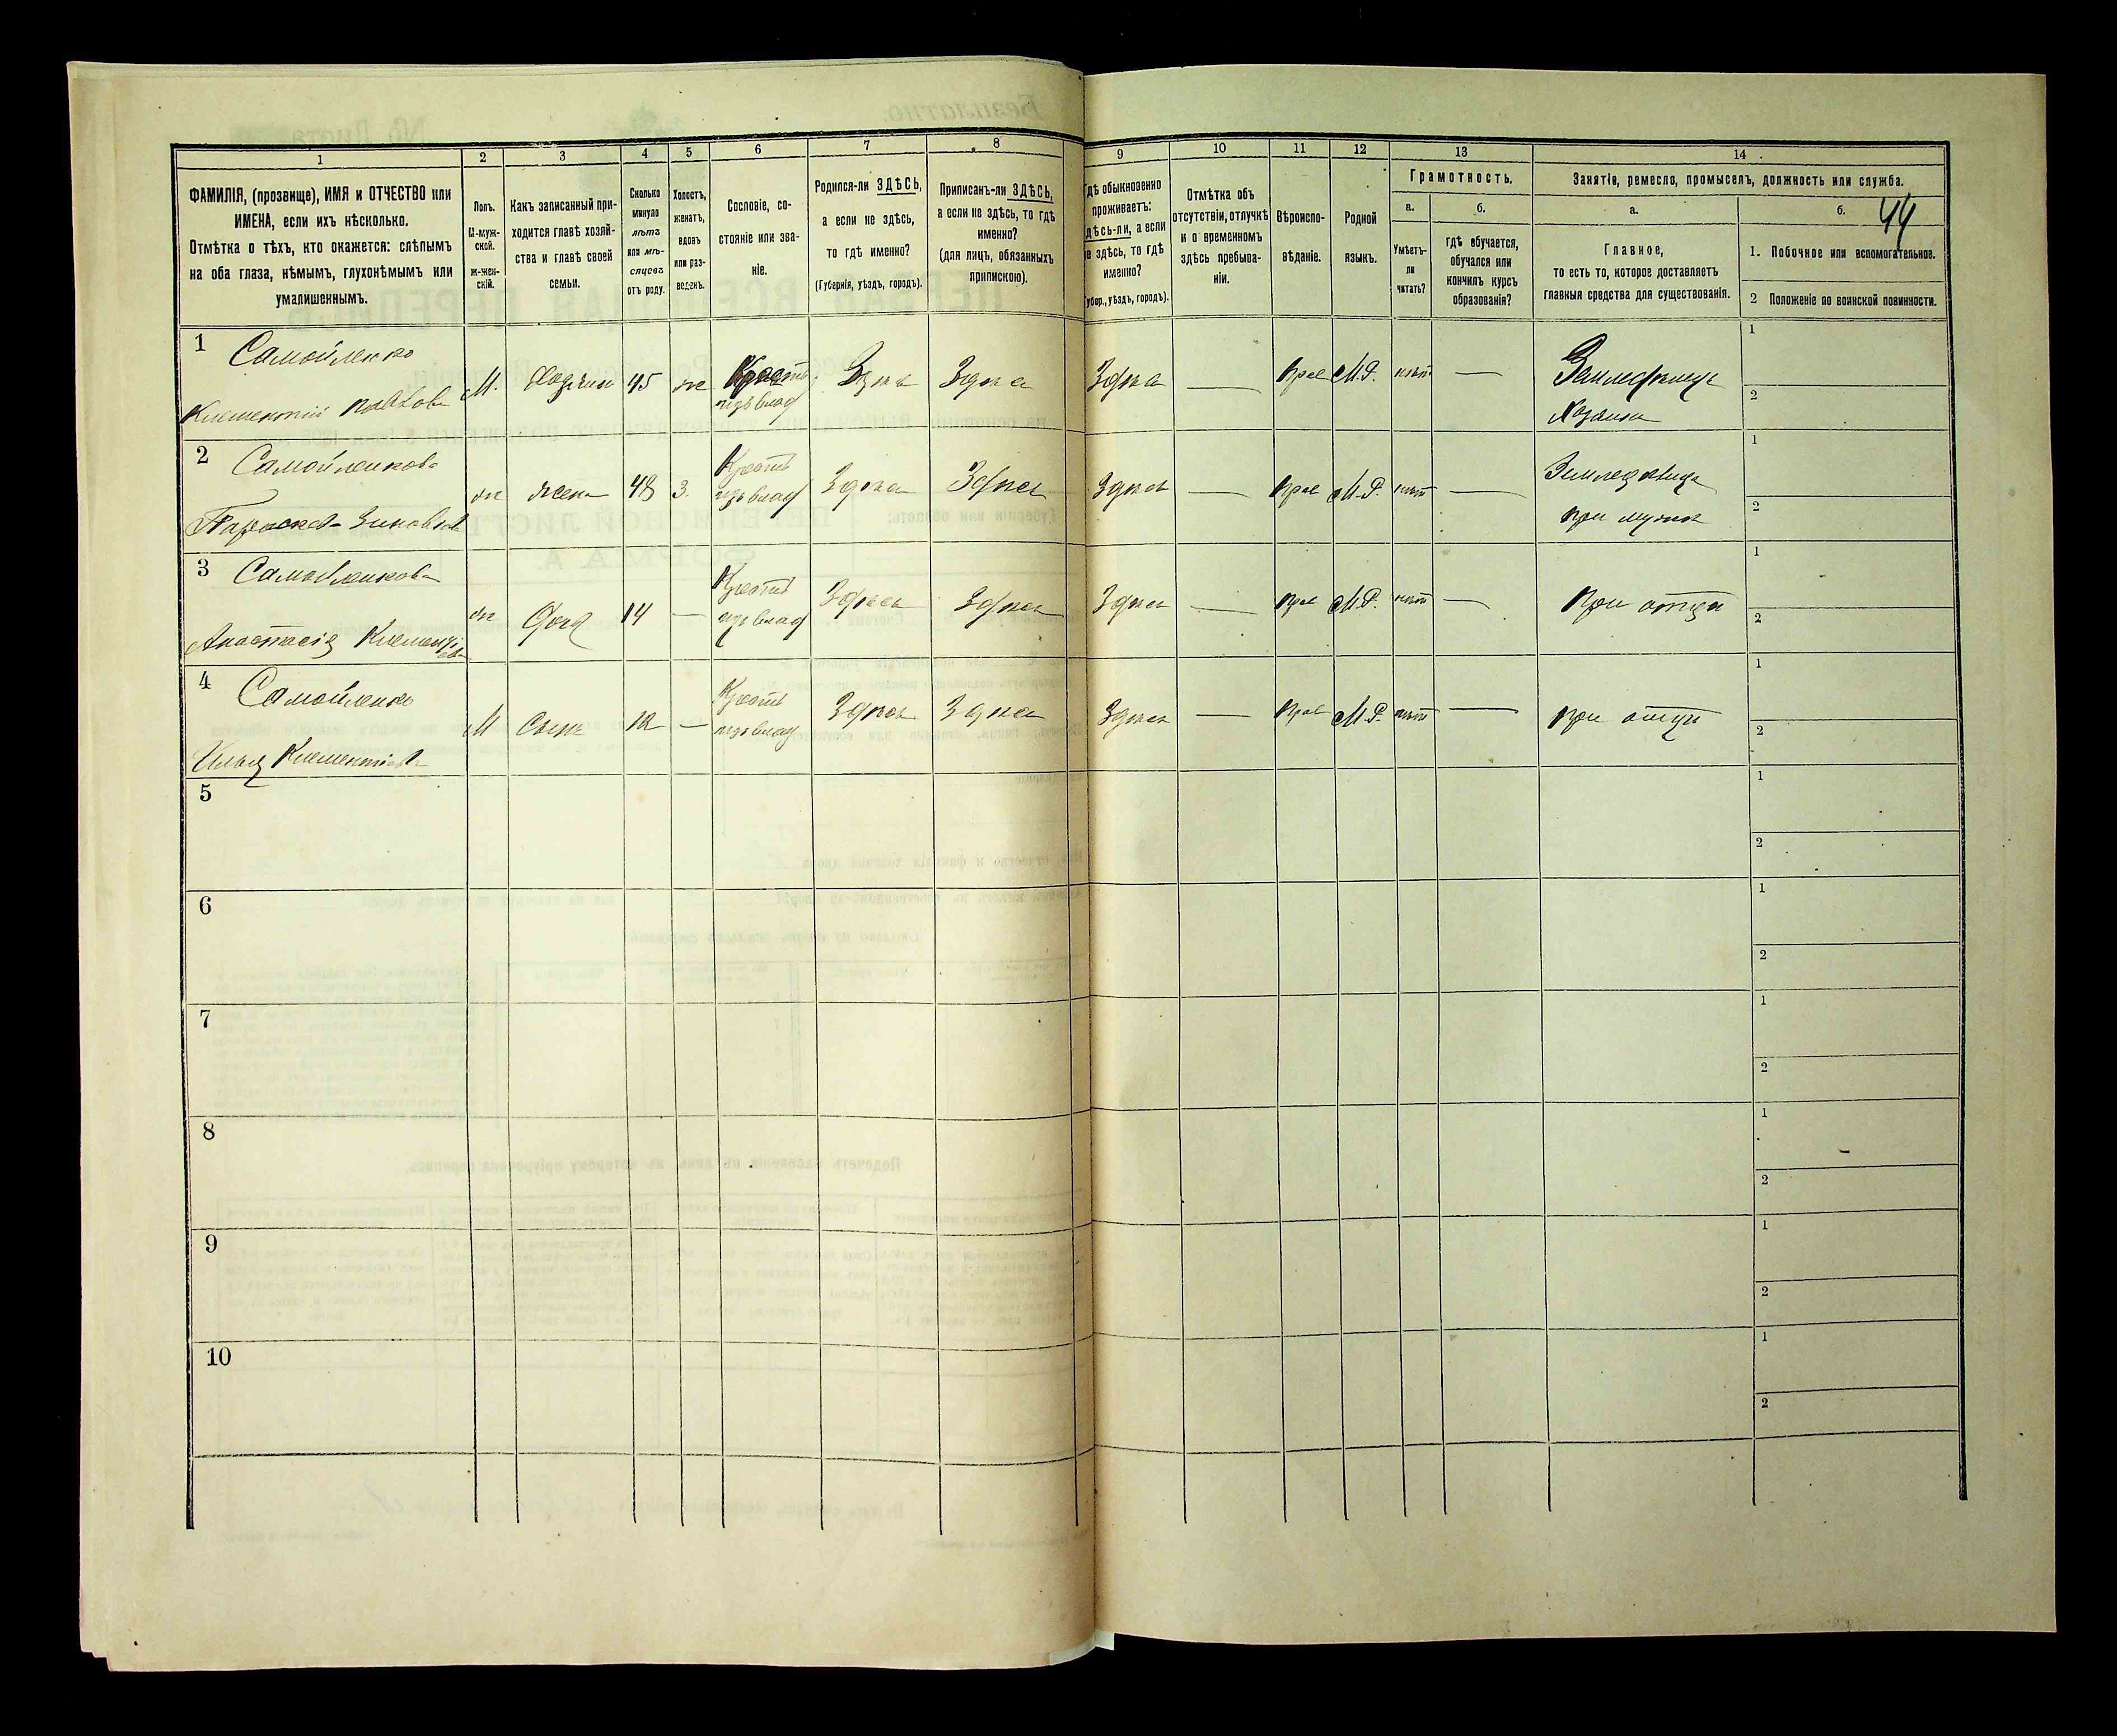 44
1 2 3 4 5 6 7 8 9 10 11 12 13 14
ФАМИЛІЯ, (прозвище), ИМЯ и ОТЧЕСТВО или
ИМЕНА, если ихъ нѣсколько.
Отмѣтка о тѣхъ, кто окажется: слѣпымъ
на оба глаза, нѣмымъ, глухонѣмымъ или
умалишеннымъ.
Полъ.
М-муж-
ской.
ж-жен-
скій.
Какъ записанный при-
ходится главѣ хозяй-
ства и главѣ своей
семьи.
Сколько
минуло
лѣтъ
или мѣ-
сяцевъ
отъ роду.
Холостъ,
женатъ,
вдовъ
или раз-
веденъ.
Сословіе, со-
стояніе или зва-
ніе.
Родился-ли ЗДѢСЬ,
а если не здѣсь,
то гдѣ именно?
(Губернія, уѣздъ, городъ).
Приписанъ-ли ЗДѢСЬ,
а если не здѣсь, то гдѣ
именно?
(для лицъ, обязанныхъ
припискою).
дѣ обыкновенно
проживаетъ:
дѣсь-ли, а если
е здѣсь, то гдѣ
именно?
убер., уѣздъ, городъ).
Отмѣтка объ
отсутствіи, отлучкѣ
и о временномъ
здѣсь пребыва-
ніи.
Вѣроиспо-
вѣданіе.
Родной
языкъ.
Грамотность.
а.
Умѣетъ-
ли
читать?
б.
гдѣ обучается,
обучался или
кончилъ курсъ
образованія?
Занятіе, ремесло, промыселъ, должность или служба.
а.
Главное,
то есть то, которое доставляетъ
главныя средства для существованія.
б.
1. Побочное или вспомогательное.
2 Положеніе по воинской повинности.
1 Самойленко
Климентій Павлов
М. Хозяин 45 же Крест. Здѣсь Здѣсь Здѣсь — Прав М.Р. нѣт — Земледѣлец
из влад
Хозяин
1
2
2 Самойленкова
Параска Зиновьева
же жена 48 з. Крест Здѣсь Здѣсь Здѣсь — Прав М.Р. нѣт — Земледѣлец
из влад
при мужѣ
1
2
3 Самойленкова
Анастасія Климентіева
же Доч 14 — Крест Здѣсь Здѣсь Здѣсь — Прав М.Р. нѣт — при отцѣ
из влад
1
2
4 Самойленко
Илья Климентіев
М Сын 12 — Крест Здѣсь Здѣсь Здѣсь — Прав М.Р. нѣт — при отцѣ
из влад
1
2
5
1
2
6
1
2
7
1
2
8
1
2
9
1
2
10
1
2